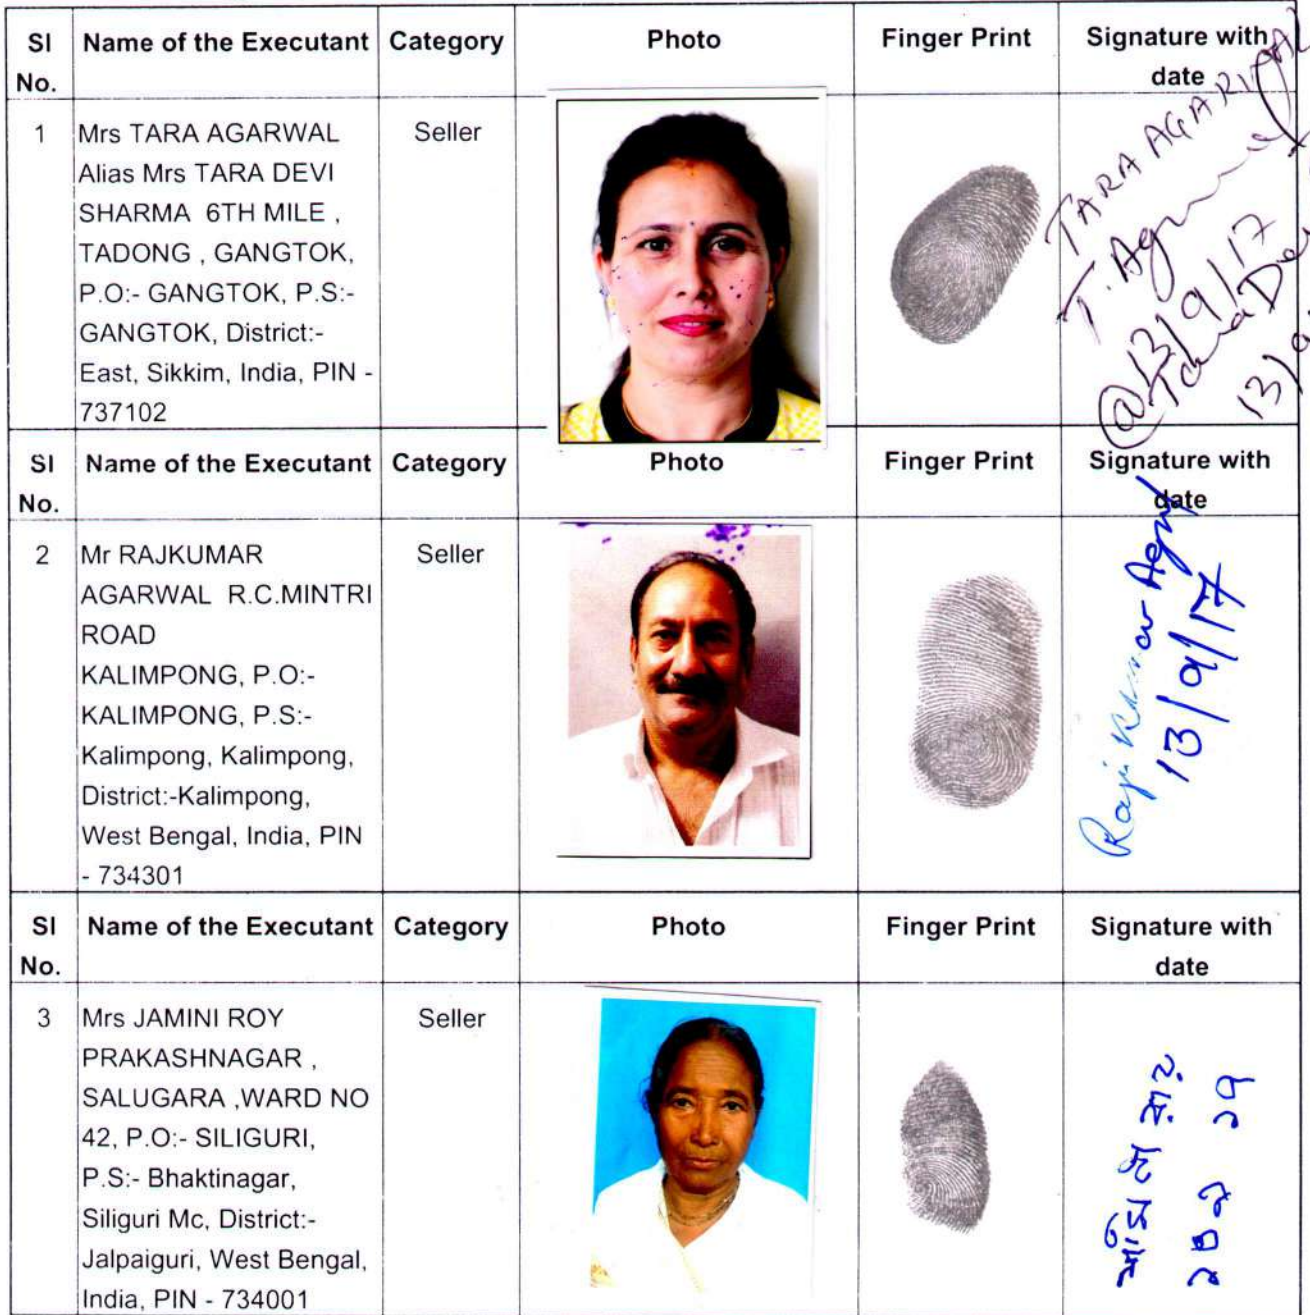 Sl No. Name of the Executant Category Photo Finger Print Signature with date
1 Mrs TARA AGARWAL Seller
Alias Mrs TARA DEVI
SHARMA 6TH MILE ,
TADONG , GANGTOK,
P.O:- GANGTOK, P.S:-
GANGTOK, District:-
East, Sikkim, India, PIN -
737102
TARA AGARWAL
T. Agarwal
13/9/17
@ Tara Devi
13/9/
Sl No. Name of the Executant Category Photo Finger Print Signature with date
2 Mr RAJKUMAR Seller
AGARWAL R.C.MINTRI
ROAD
KALIMPONG, P.O:-
KALIMPONG, P.S:-
Kalimpong, Kalimpong,
District:-Kalimpong,
West Bengal, India, PIN
- 734301
13/9/17
Sl No. Name of the Executant Category Photo Finger Print Signature with date
3 Mrs JAMINI ROY Seller
PRAKASHNAGAR ,
SALUGARA ,WARD NO
42, P.O:- SILIGURI,
P.S:- Bhaktinagar,
Siliguri Mc, District:-
Jalpaiguri, West Bengal,
India, PIN - 734001
রায়